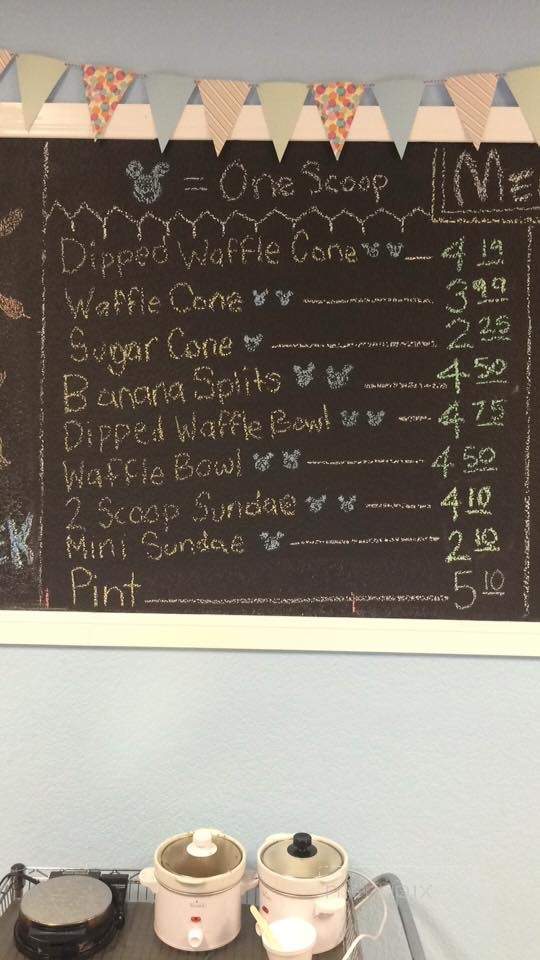 = One Scoop
Dipped Waffle Cone 4 19
Waffle Cone 3 99
Sugar Cone 2 25
Banana Splits 4 50
Dipped Waffle Bowl 4 75
Waffle Bowl 4 50
2 Scoop Sundae 4 10
Mini Sundae 2 10
Pint 5 10